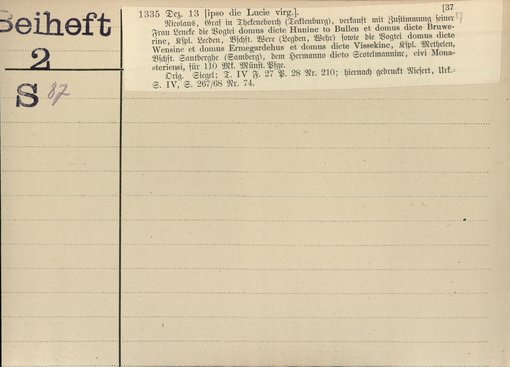 Beiheft
2
S 37
[37
1335 Dez. 13 [ipso die Lucie virg.].
Nicolaus, Graf in Thekeneborch (Tecklenburg), verkauft mit Zustimmung seiner
Frau Lencke die Vogtei domus dicte Huninc to Bullen et domus dicte Bruwe-
rinc, Kspl. Leeden, Bschft. Were (Legden, Wehr) sowie die Vogtei domus dicte
Wensinc et domus Ermegardehus et domus dicte Vissekinc, Kspl. Metheten,
Bschft. Santberghe (Samberg), dem Hermanno dicto Scotelmannine, civi Mona-
steriensi, für 110 Mk. Münst. Pfge.
Orig. Siegel: T. IV F. 27 P. 28 Nr. 210; hiernach gedruckt Niesert, Urk.-
S. IV, S. 267/68 Nr. 74.